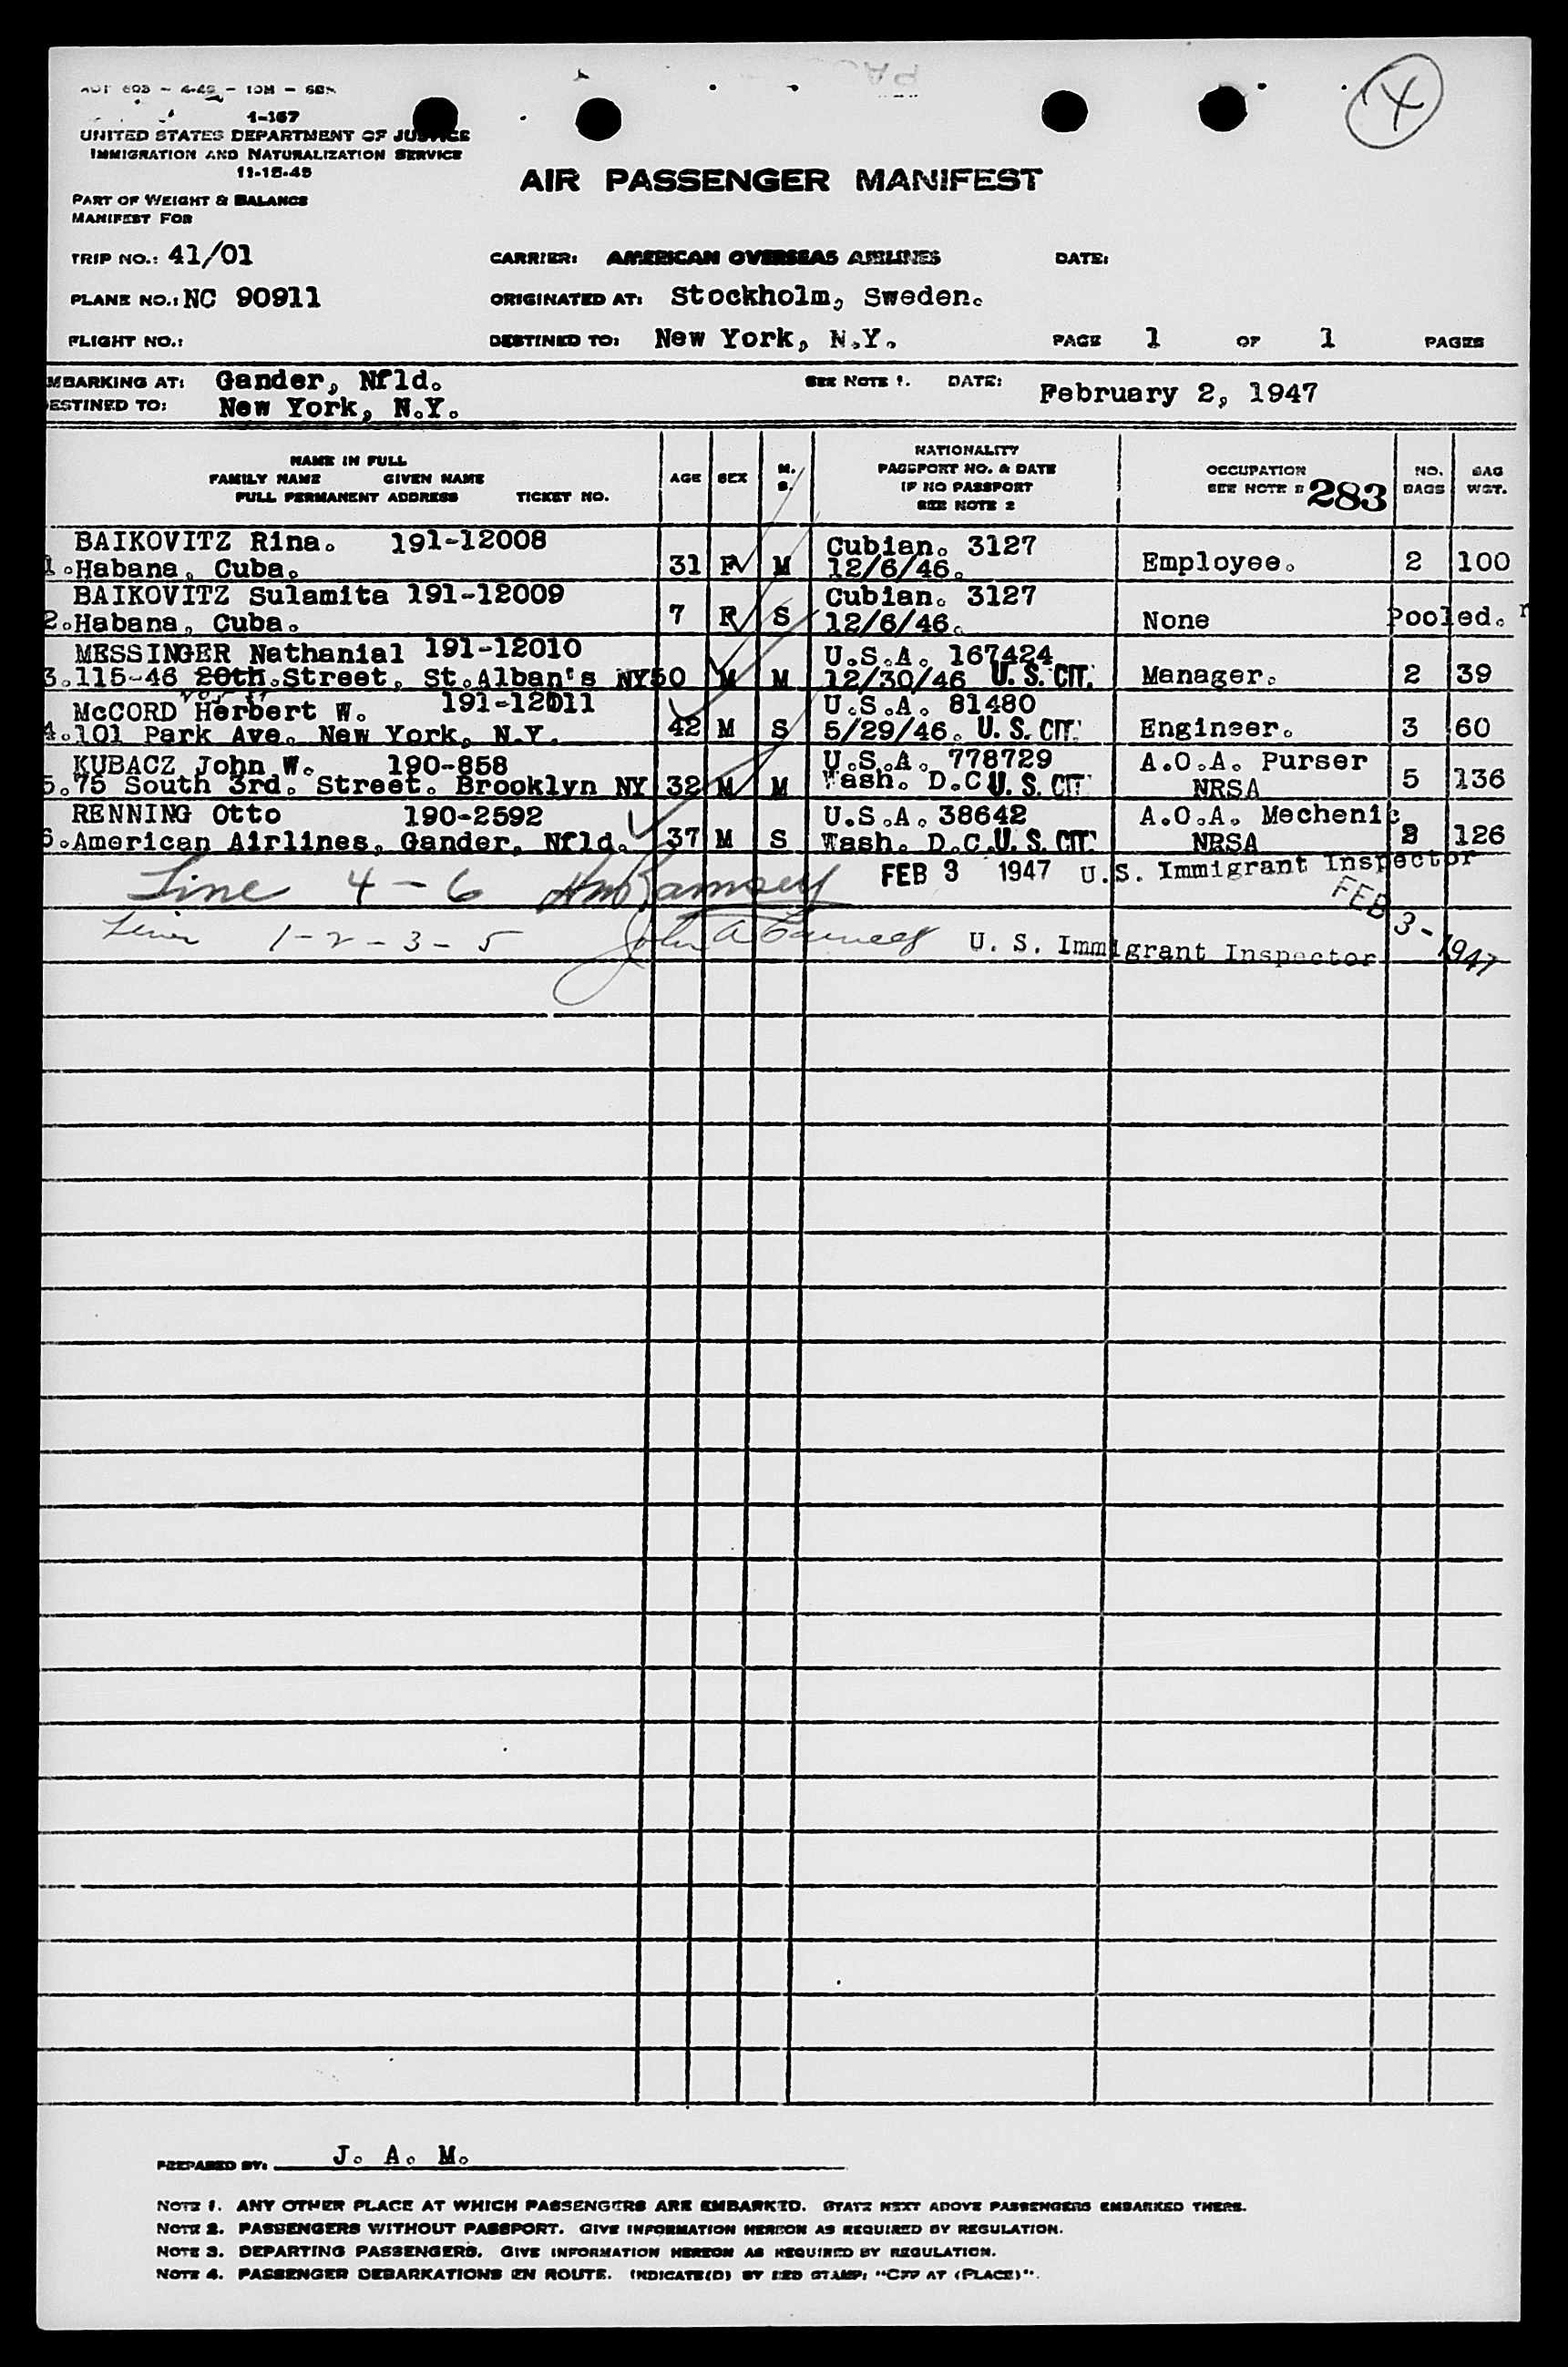 4-45 - 10M -
1-167
UNITED STATES DEPARTMENT OF JUSTICE
IMMIGRATION AND NATURALIZATION SERVICE
11-15-45
AIR PASSENGER MANIFEST
PART OF WEIGHT & BALANCE
MANIFEST FOR
TRIP NO.: 41/01 CARRIER: AMERICAN OVERSEAS AIRLINES DATE:
PLANE NO.: NC 90911 ORIGINATED AT: Stockholm, Sweden.
FLIGHT NO.: DESTINED TO: New York, N.Y. PAGE 1 OF 1 PAGES
MBARKING AT: Gander, Nfld. SEE NOTE 1. DATE: February 2, 1947
ESTINED TO: New York, N.Y.
NAME IN FULL
FAMILY NAME GIVEN NAME
FULL PERMANENT ADDRESS TICKET NO. AGE SEX M. S. NATIONALITY PASSPORT NO. & DATE IF NO PASSPORT SEE NOTE 2 OCCUPATION SEE NOTE 283 NO. BAGS BAG WGT.
BAIKOVITZ Rina. 191-12008 Cubian. 3127
1.Habana, Cuba. 31 F M 12/6/46. Employee. 2 100
BAIKOVITZ Sulamita 191-12009 Cubian. 3127
2.Habana, Cuba. 7 F S 12/6/46. None Pooled.
MESSINGER Nathanial 191-12010 U.S.A. 167424
3.115-46 20th.Street, St.Alban's NY 50 M M 12/30/46 U.S. CIT. Manager. 2 39
McCORD Herbert W. 191-12011 U.S.A. 81480
4.101 Park Ave. New York, N.Y. 42 M S 5/29/46. U.S. CIT. Engineer. 3 60
KUBACZ John W. 190-858 U.S.A. 778729 A.O.A. Purser
5.75 South 3rd. Street. Brooklyn NY 32 M M Wash. D.C. U.S. CIT. NRSA 5 136
RENNING Otto 190-2592 U.S.A. 38642 A.O.A. Mechenic.
6.American Airlines, Gander, Nfld. 37 M S Wash. D.C. U.S. CIT. NRSA 126
Line 4-6 Ramsey FEB 3 1947 U.S. Immigrant Inspector
1-2-3-5 John A U. S. Immigrant Inspector FEB 3-1947
PREPARED BY: J. A. M.
NOTE 1. ANY OTHER PLACE AT WHICH PASSENGERS ARE EMBARKED. STATE NEXT ABOVE PASSENGERS EMBARKED THERE.
NOTE 2. PASSENGERS WITHOUT PASSPORT. GIVE INFORMATION HEREON AS REQUIRED BY REGULATION.
NOTE 3. DEPARTING PASSENGERS. GIVE INFORMATION HEREON AS REQUIRED BY REGULATION.
NOTE 4. PASSENGER DEBARKATIONS EN ROUTE. INDICATE(D) BY RED STAMP: "OFF AT (PLACE)".